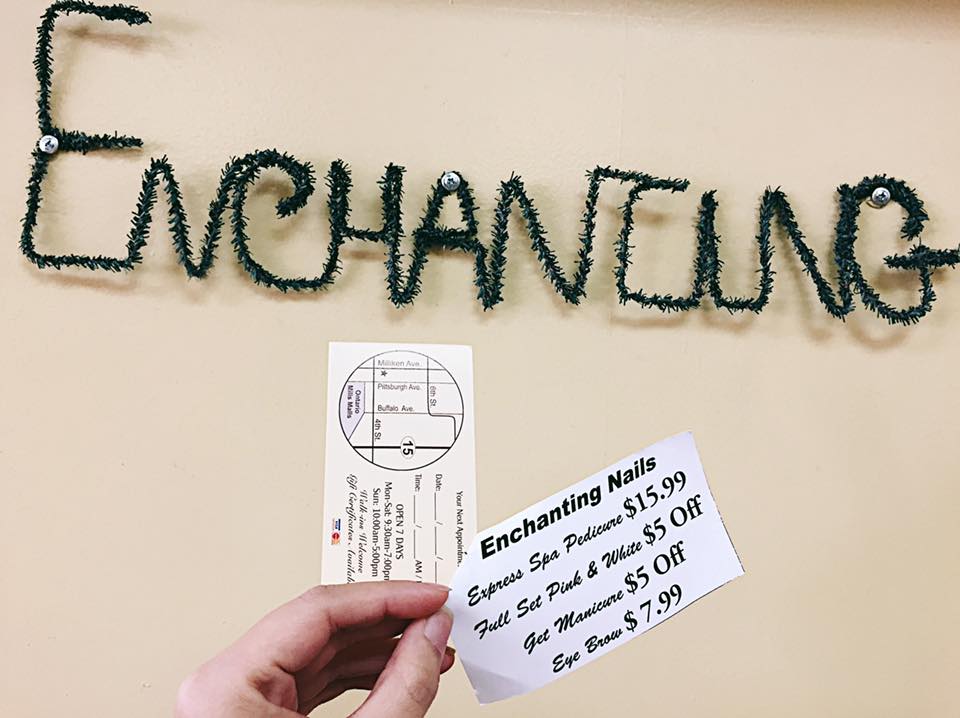 ENCHANTING
Milliken Ave.
Pittsburgh Ave.
Buffalo Ave.
6th St.
4th St.
Ontario
Mills Malls
15
Your Next Appointm
Date: ____ / ____ /
Time: ____ / ____ AM /
OPEN 7 DAYS
Mon-Sat: 9:30am-7:00pm
Sun: 10:00am-5:00pm
Walk-ins Welcome
Gift Certificates Availabl
Enchanting Nails
Express Spa Pedicure $15.99
Full Set Pink & White $5 Off
Get Manicure $5 Off
Eye Brow $7.99